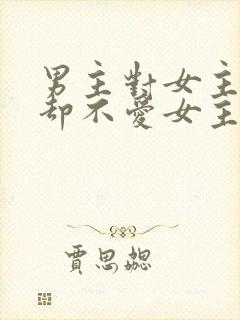 男主對女主
却不愛女主
賈思勰